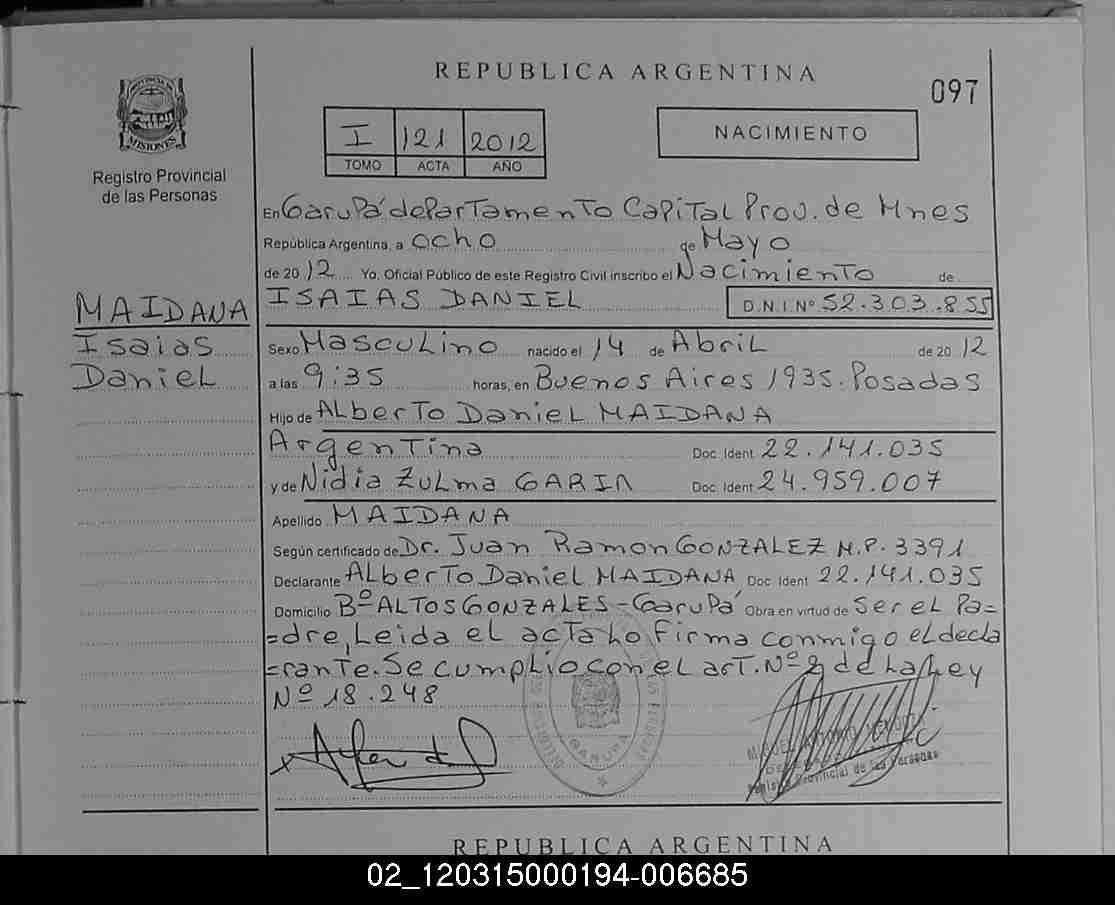 REPUBLICA ARGENTINA
097
PROVINCIA DE
MISIONES
Registro Provincial
de las Personas
I 121 2012
TOMO ACTA AÑO
NACIMIENTO
En Garupá departamento Capital Prov. de Mnes
República Argentina, a ocho de Mayo
de 2012 Yo, Oficial Público de este Registro Civil inscribo el Nacimiento de
ISAIAS DANIEL D.N.I. Nº 52.303.855
MAIDANA
Isaias
Daniel
Sexo Masculino nacido el 14 de Abril de 2012
a las 9:35 horas, en Buenos Aires 1935. Posadas
Hijo de Alberto Daniel MAIDANA
Argentina Doc. Ident. 22.141.035
y de Nidia Zulma GARIN Doc. Ident. 24.959.007
Apellido MAIDANA
Según certificado de Dr. Juan Ramon GONZALEZ M.P. 3391
Declarante Alberto Daniel MAIDANA Doc. Ident. 22.141.035
Domicilio Bº ALTOS GONZALES - Garupá Obra en virtud de ser el Pa=
=dre, Leida el acta Lo firma conmigo el decla
=rante. Se cumplio con el art. Nº de La Ley
Nº 18.248
GARUPA
MIGUEL
Registro Provincial de las Personas
REPUBLICA ARGENTINA
02_120315000194-006685